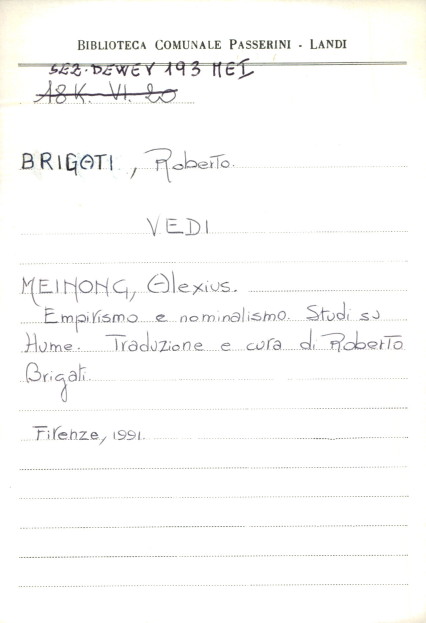 BIBLIOTECA COMUNALE PASSERINI - LANDI
SEZ. DEWEY 193 MEI
A8K. VI. 20
BRIGATI, Roberto.
VEDI
MEINONG, Alexius.
Empirismo e nominalismo. Studi su
Hume. Traduzione e cura di Roberto
Brigati.
Firenze, 1991.